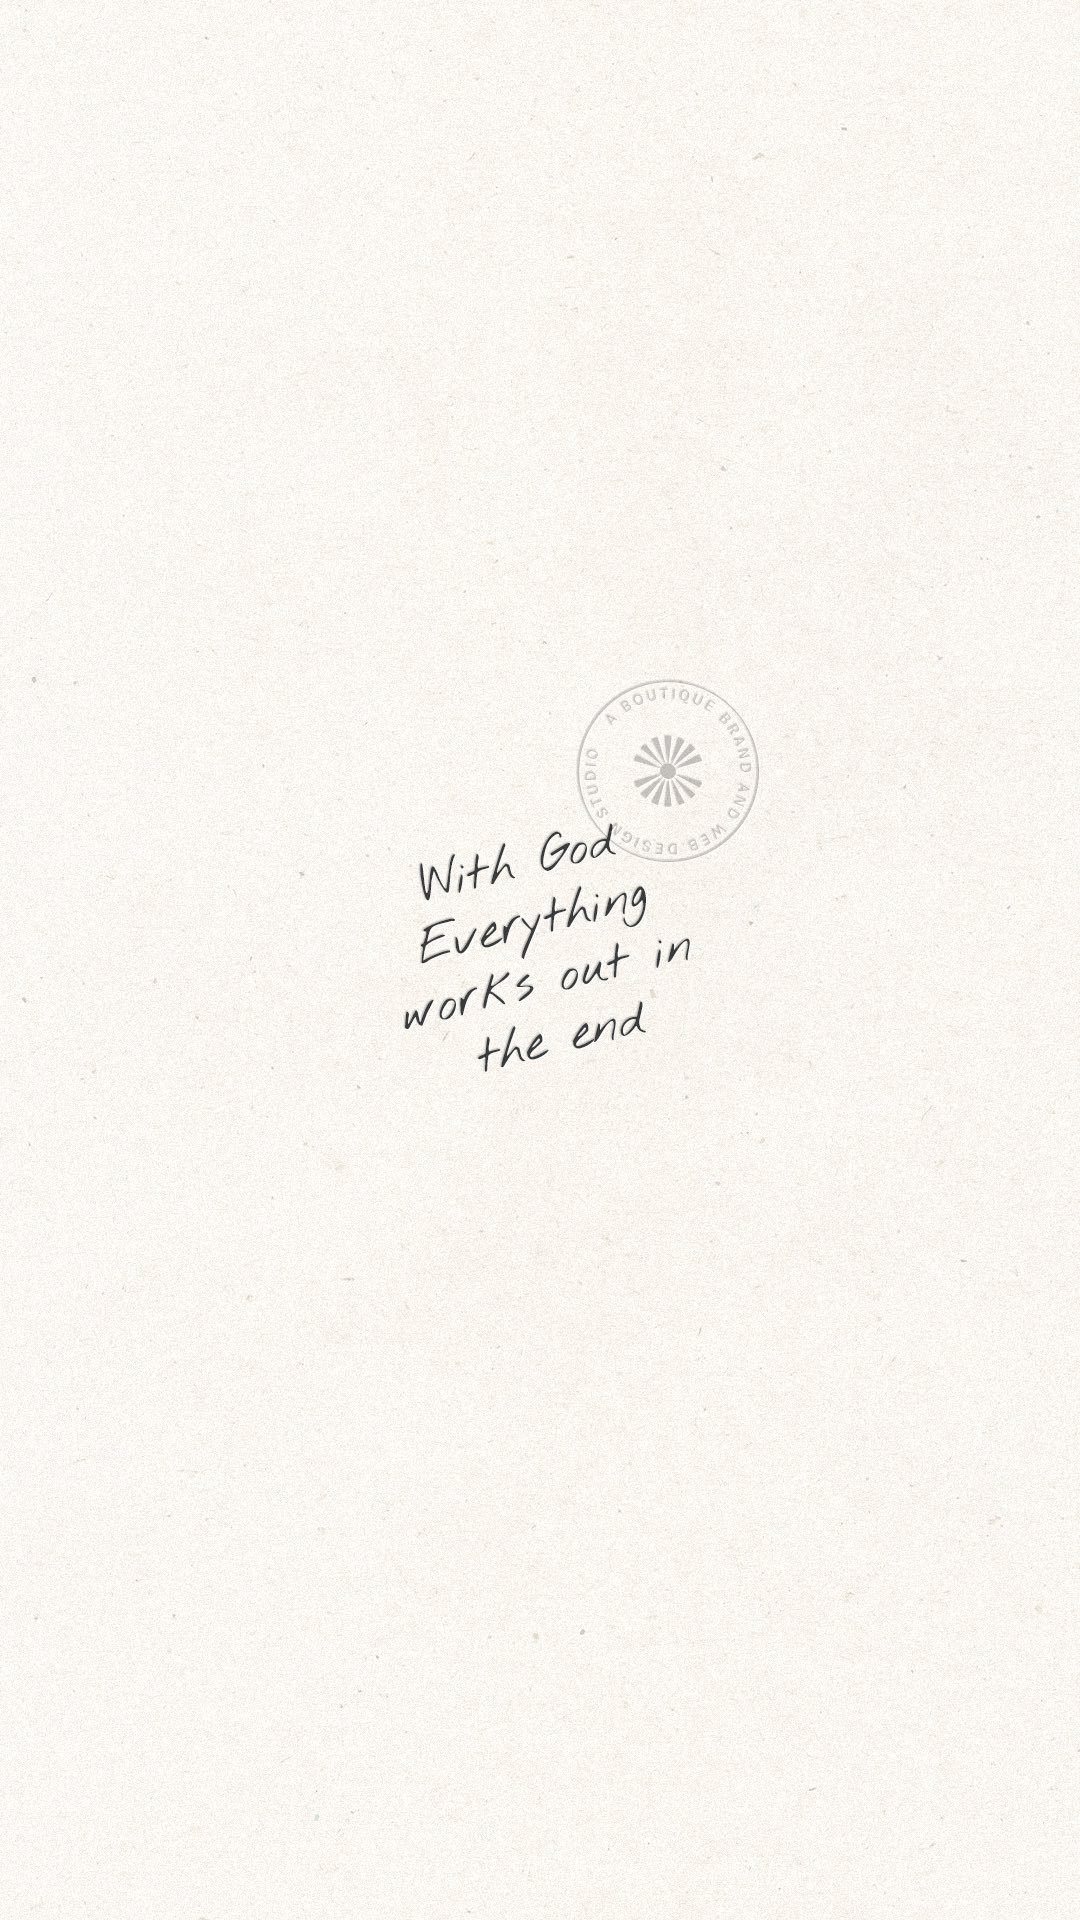 A BOUTIQUE BRAND AND WEB DESIGN STUDIO
With God
Everything
works out in
the end